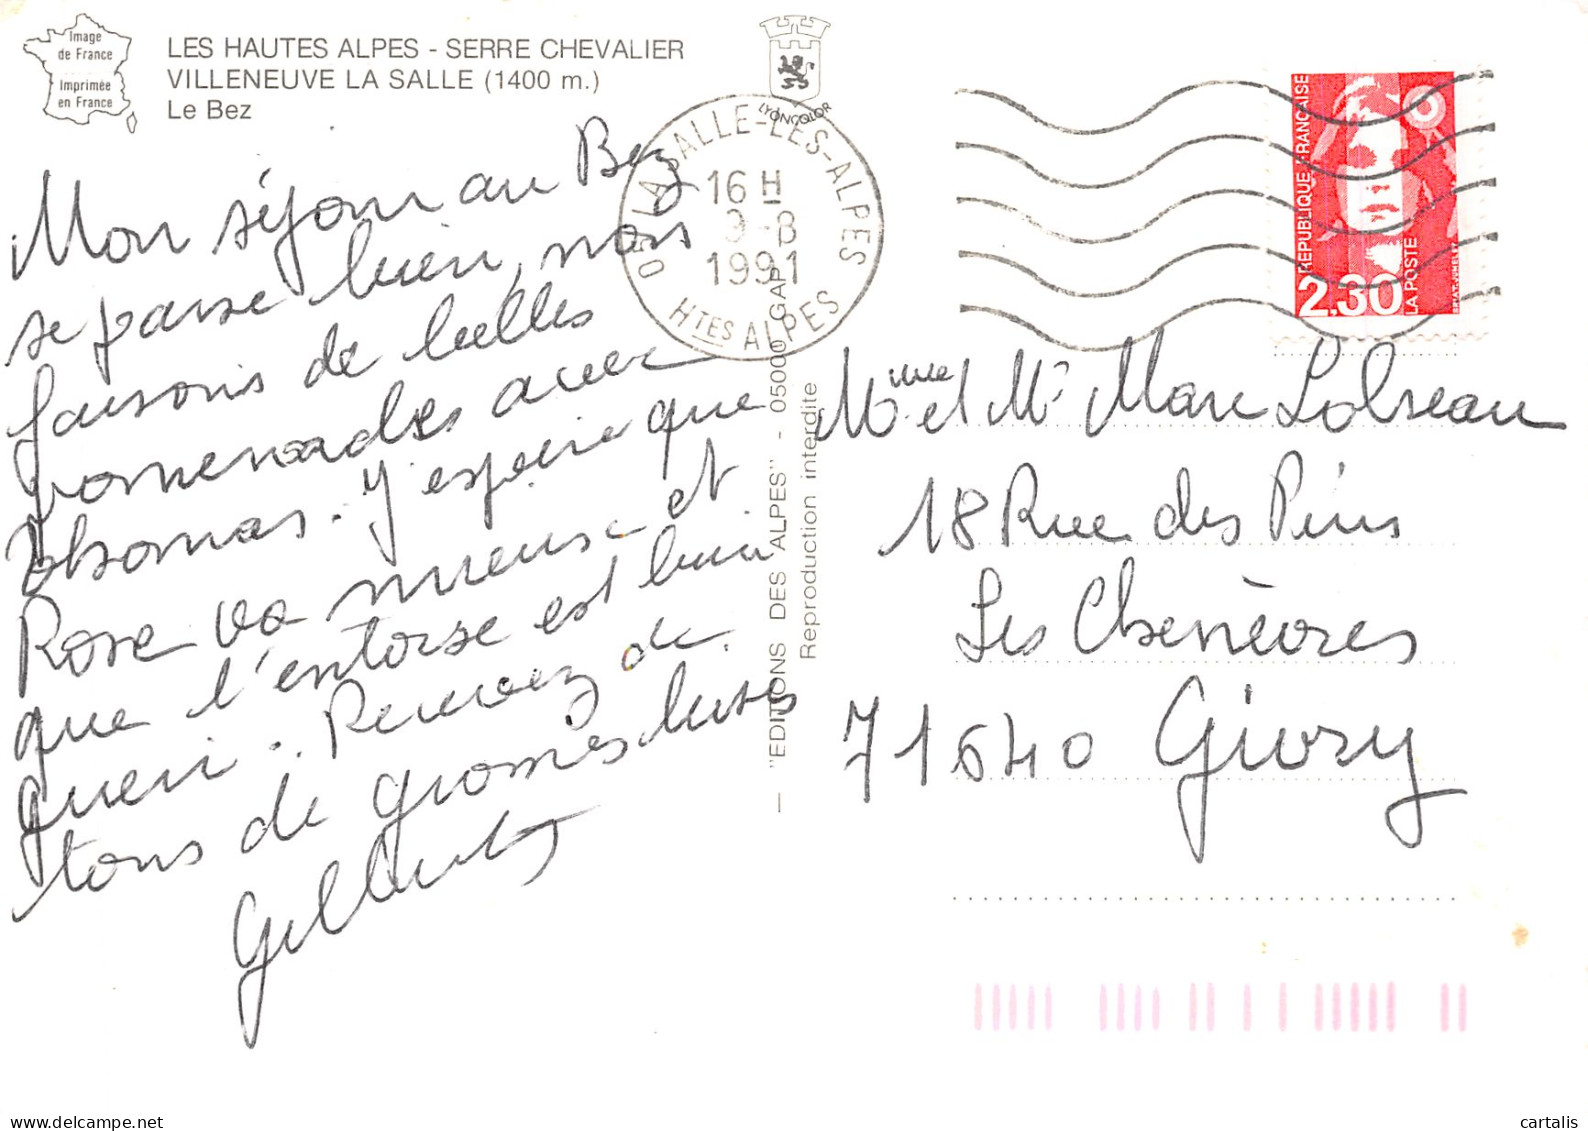 Image
de France
Imprimée
en France
LES HAUTES ALPES - SERRE CHEVALIER
VILLENEUVE LA SALLE (1400 m.)
Le Bez
LYONCOLOR
LA SALLE-LES-ALPES
16 H
1991
HTES ALPES
REPUBLIQUE FRANÇAISE
2.30
LA POSTE
Mon séjour au Bez
se passe bien, nous
faisons de belles
promenades avec
Thomas. J'espère que
Rose va mieux et
que l'entorse est bien
guérie. Recevez de
tous de grosses bises
"EDITIONS DES ALPES" - 05000 GAP
Reproduction interdite
Mme et Mr Marc
18 Rue des Pins
Les Chenèvres
71640 Givry
cartalis